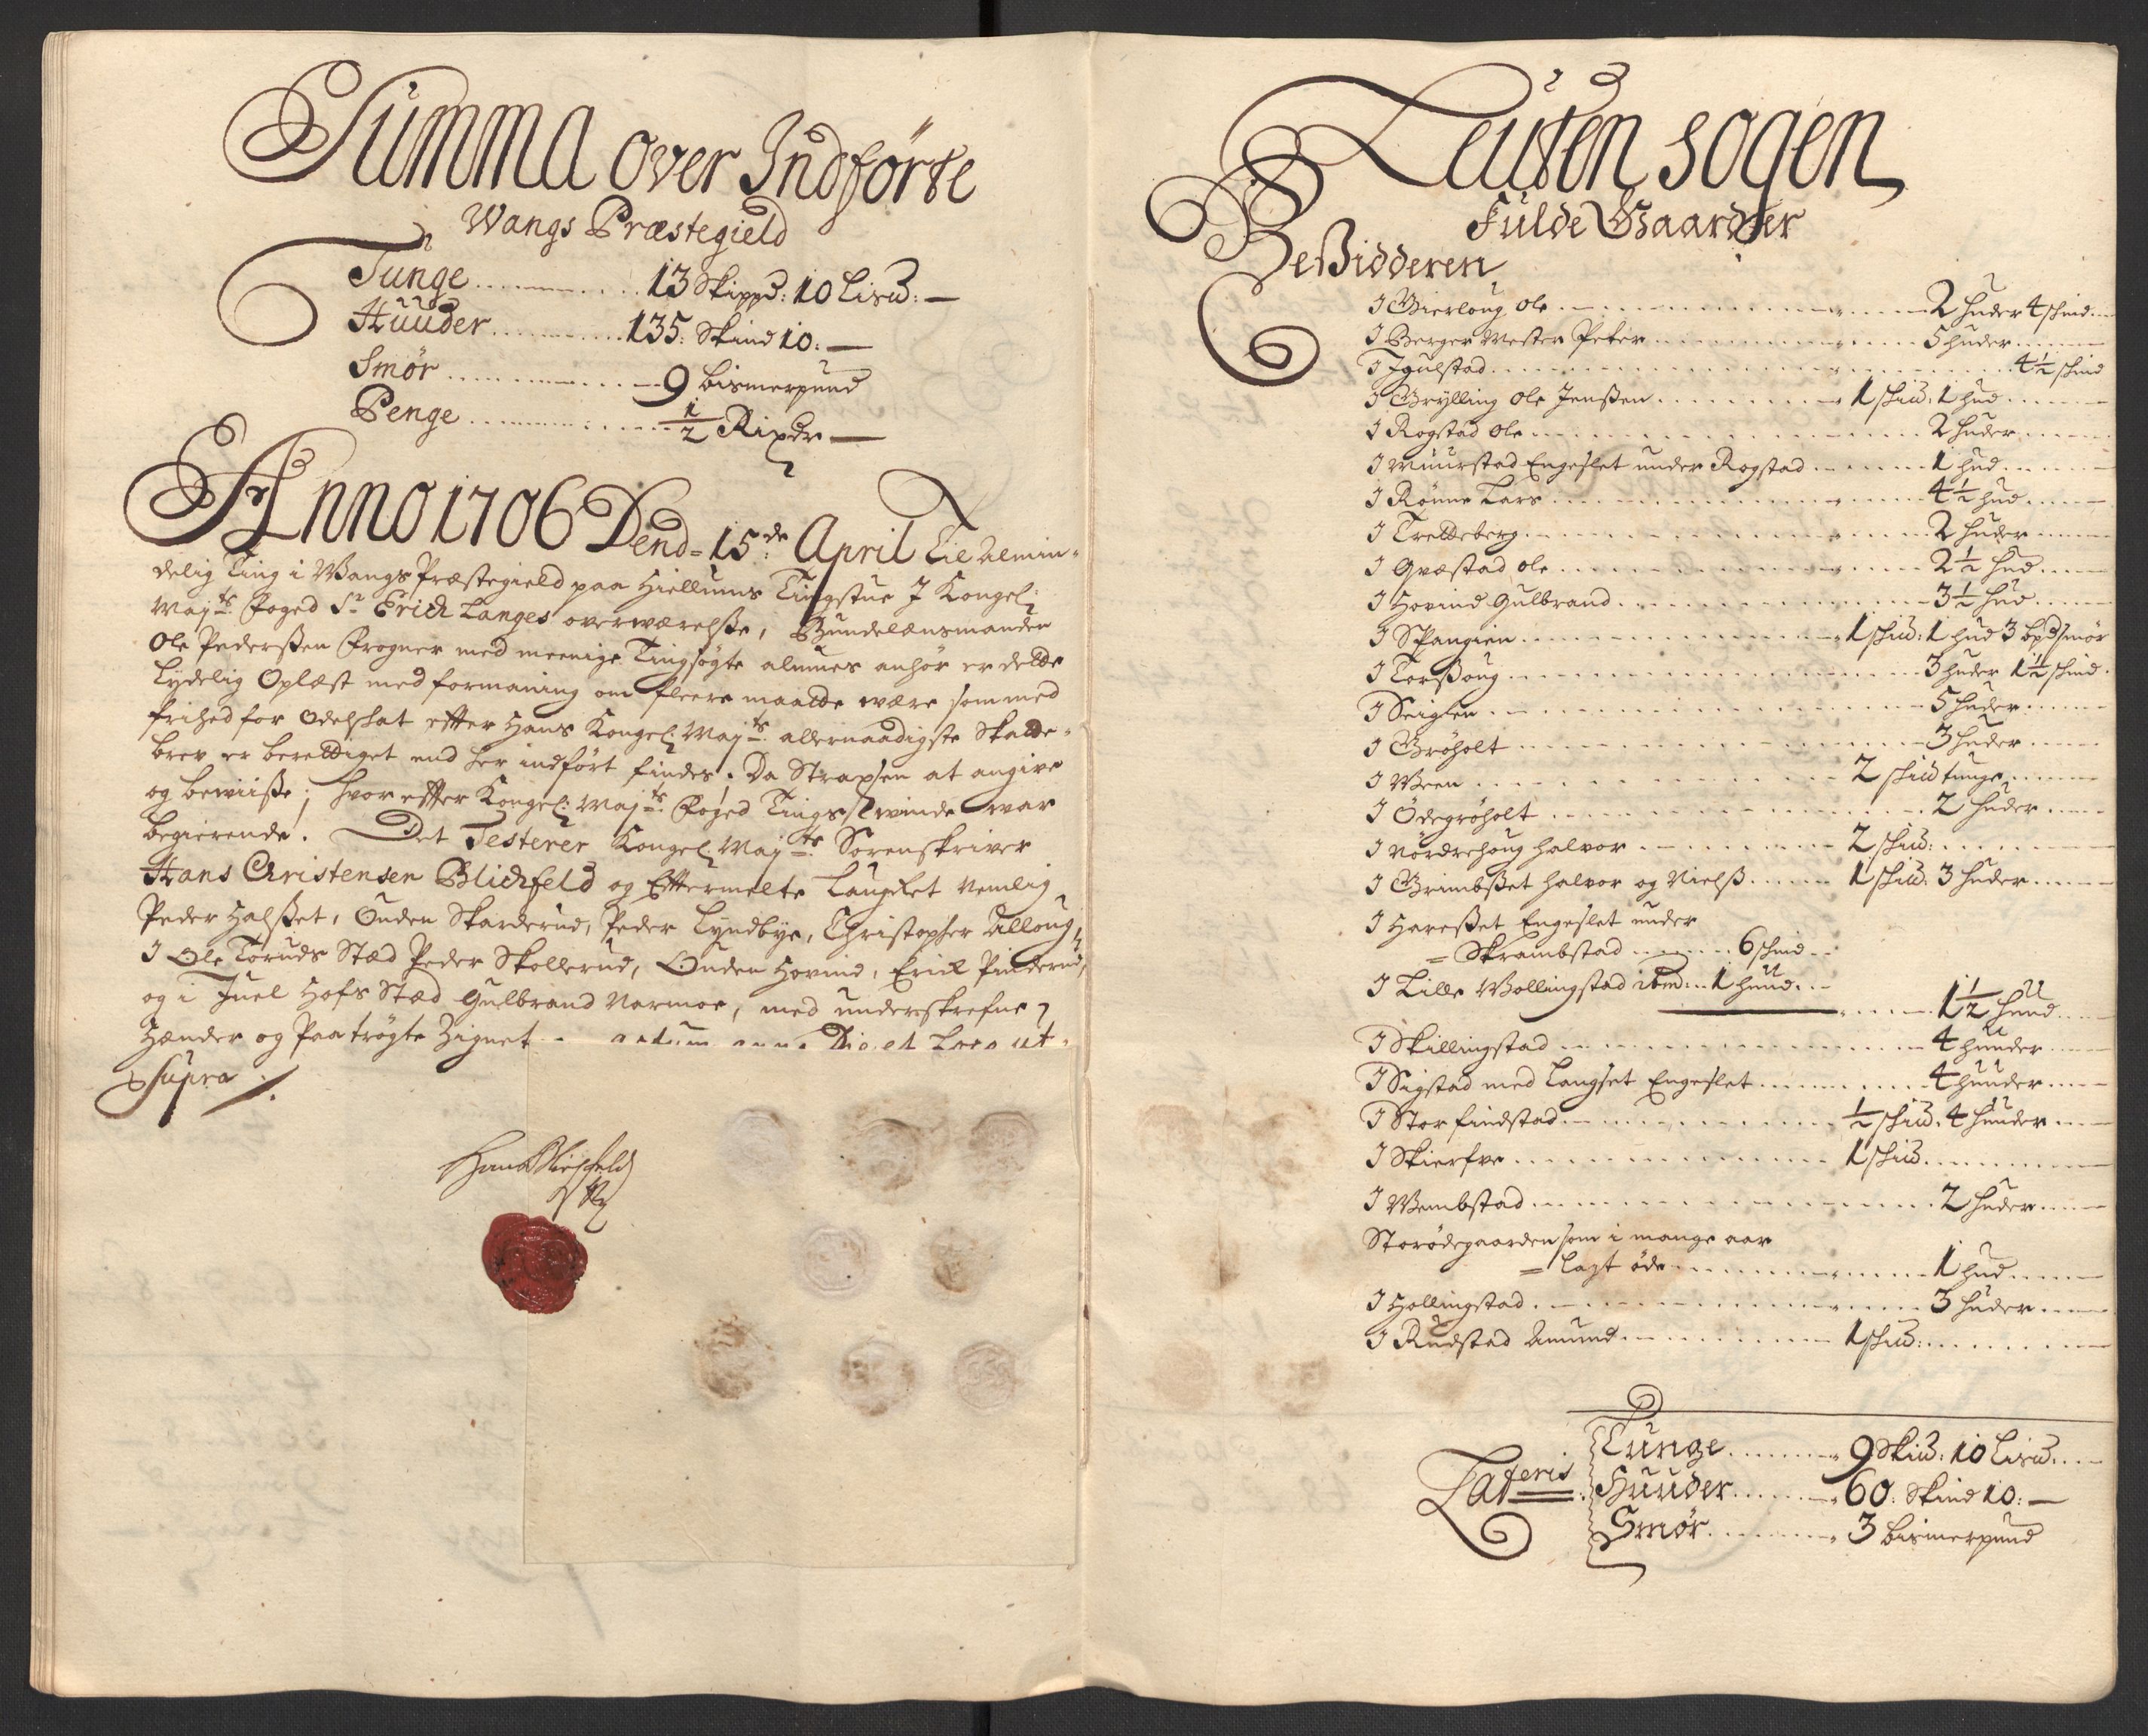 Summa over Indførte
Wangs Præstegield
Tunge ......... 13 Skippd: 10 Lisd: —
Huuder ......... 135: Skind 10: —
Smør ......... 9 bismerpund
Penge ......... ½ Rixdr —
Anno 1706 Dend = 15de April Til Almin-
delig Ting i Wangs Præstegield paa Hiellums Tingstue J Kongel:
Mayts: Foged Sr Erich Langes overwærelsse, Bundelænsmanden
Ole Pederssen Frogner med meenige Tingsøgte almues anhør er dette
Lydelig Oplæst med formaning om fleere maatte være som med
frihed for Odelskat effter Hans Kongel: Mayts: allernaadigste Skatte-
brev er berettiget end her indført findes, Da Strapsen at angive
og beviisse; hvor effter Kongel: Mayts: Foged Tings winde war
begierende. Det Testerer Kongel: Mayts: Sorenskriver
Hans Christensen Blichfeld og Efftermelte Laugret Nemlig
Peder Halsset, Ouden Skarderud, Peder Lyndbye, Christopher Alloug,
J Ole Toruds Stæd Peder Skollerud, Ouden Hovind, Erich Pinderud,
og i Juel Hofs Stæd Gulbrand Narmoe, med underskrefne
Hænder og Paatrögte Zignet
Supra
Hans Blichfeld
Leuten sogen
Fulde Gaarder
Beßidderen
J Gierloug Ole ......... 2 huder 4 skind
J Berger Wester Peter ......... 5 huder
J Igulstad ......... 4½ skind
J Grylling Ole Jenßen ......... 1 skid: 1 hud
J Rogstad Ole ......... 2 huder
J Muurstad Engeslet under Rogstad ......... 1 hud
J Rønne Lars ......... 4½ hud
J Tretteberg ......... 2 huder
J Gvæstad Ole ......... 2½ hud
J Hovind Gulbrand ......... 3½ hud
J Spangien ......... 1 skid: 1 hud 3 bpd smør
J Torßoug ......... 3 huder 1½ skind
J Seiglen ......... 5 huder
J Grøholt ......... 3 huder
J Ween ......... 2 skid tunge
J Ödegrøholt ......... 2 huder
J Nordrehoug Halvor ......... 2 skid:
J Grimbßet Halvor og Nielß ......... 1 skid: 3 huder
J Hareßet Engeslet under
= Skrambstad ......... 6 skind
J Lille Wollingstad ibm: 1 huud
1½ huud
J Skillingstad ......... 4 huuder
J Sigstad med Langset Engeslet ......... 4 huuder
J Stor findstad ......... ½ skid: 4 huuder
J Skierfve ......... 1 skid
J Wembstad ......... 2 huder
Storødegaarden som i mange aar
= Lagt øde ......... 1 hud
J Hollingstad ......... 3 huder
J Rudstad Amund ......... 1 skid:
Lateris
Tunge ......... 9 Skid: 10 Lisd
Huuder ......... 60: Skind 10: —
Smør ......... 3 bismerpund